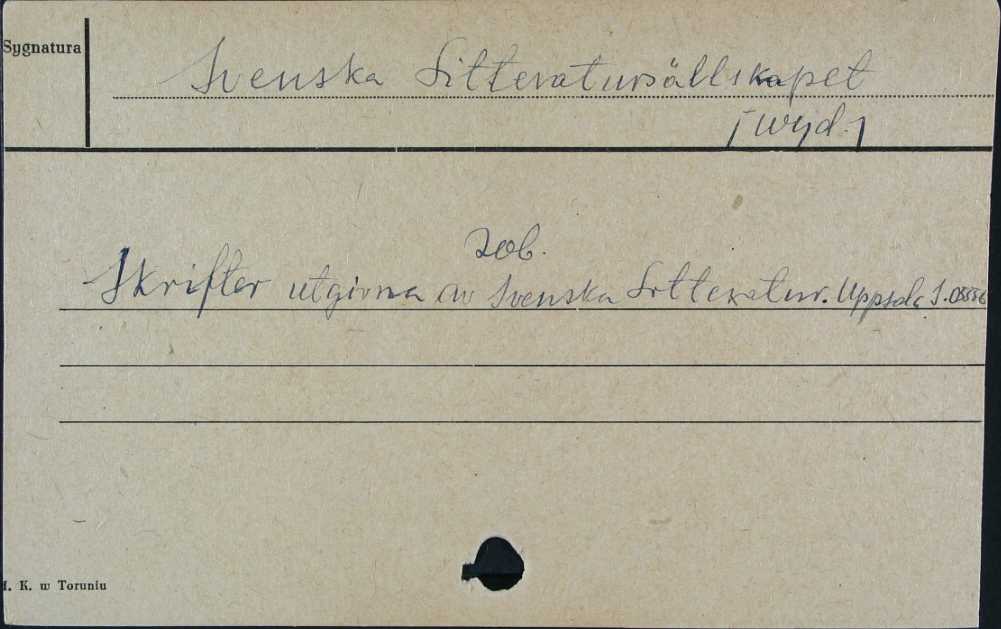 Sygnatura
Svenska Litteratursällskapet
[wyd.]
zob.
Skrifter utgivna av Svenska Litteratur. Uppsala S.05556
K. w Toruniu